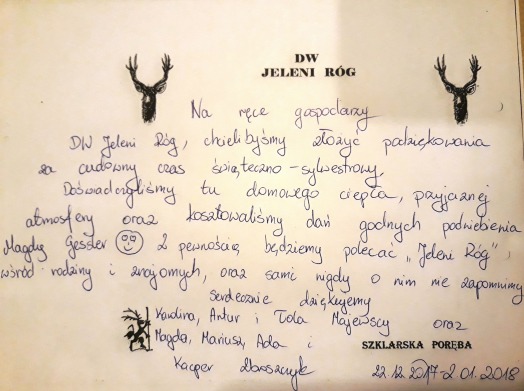 DW
JELENI RÓG
Na ręce gospodarzy
DW Jeleni Róg, chcielibyśmy złożyć podziękowania
za cudowny czas świąteczno-sylwestrowy.
Doświadczyliśmy tu domowego ciepła, przyjaznej
atmosfery oraz kosztowaliśmy dań godnych podniebienia
Magdy Gessler Z pewnością będziemy polecać "Jeleni Róg",
wśród rodziny i znajomych, oraz sami nigdy o nim nie zapomnimy
Serdecznie dziękujemy
Karolina, Artur i Tola Majewscy oraz
Magda, Mariusz, Ada i
SZKLARSKA PORĘBA
Kacper
22.12.2017-2.01.2018